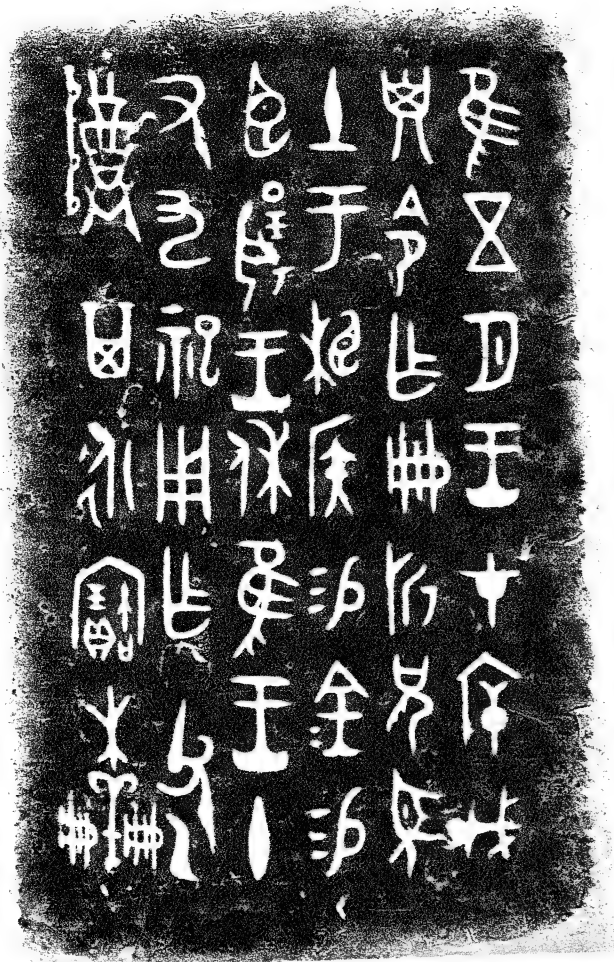 隹五月王才斥戊
子令乍冊折兄望
土于相侯易金易
臣揚王休隹王十
又九祀用乍父乙
尊其永寶木羊冊